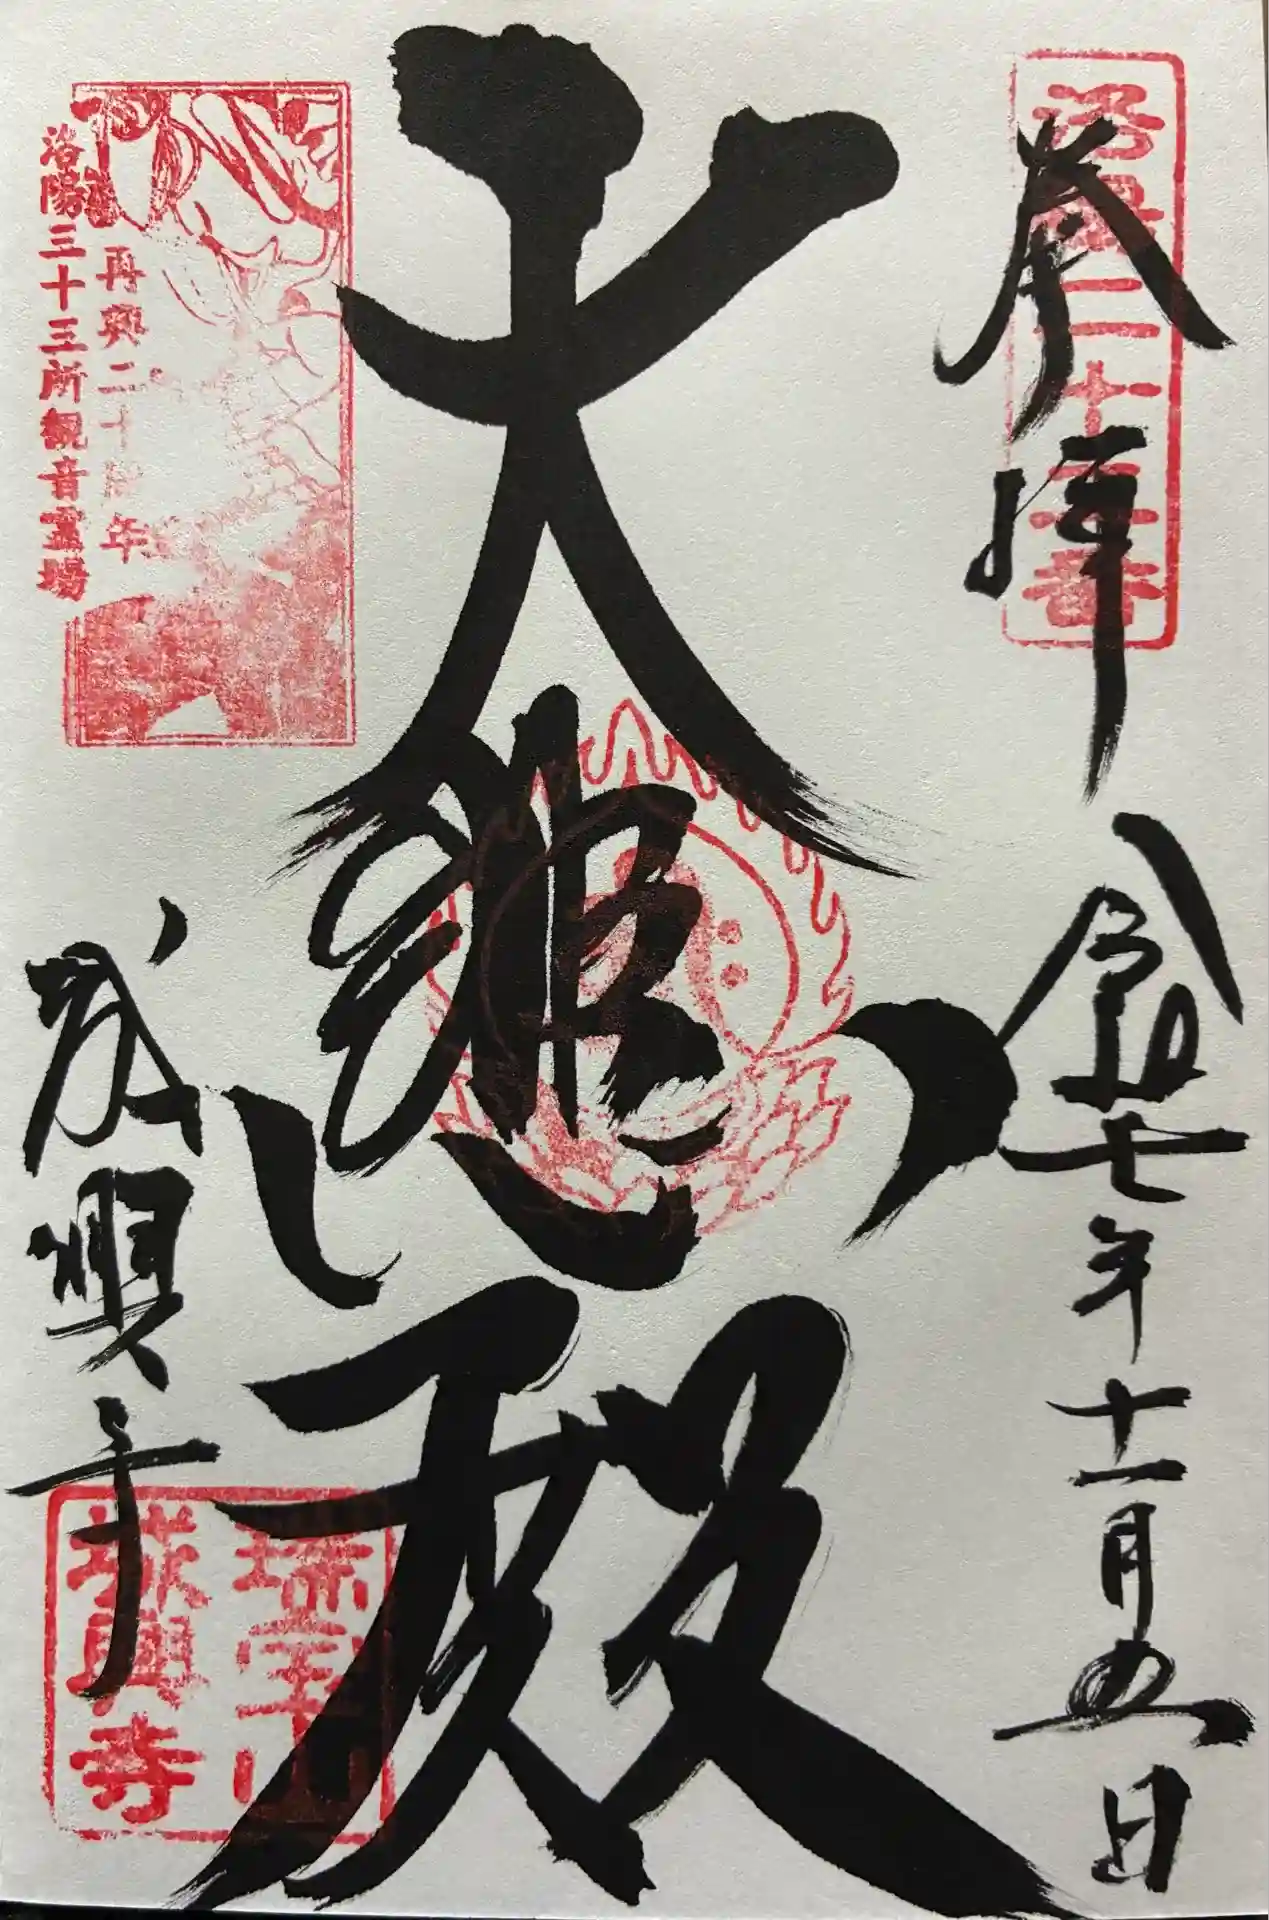 奉拝
令和七年十一月五日
洛陽二十二番
大悲殿
再興二十
年
洛陽三十三所観音霊場
城興寺
瑞宝山
城興寺